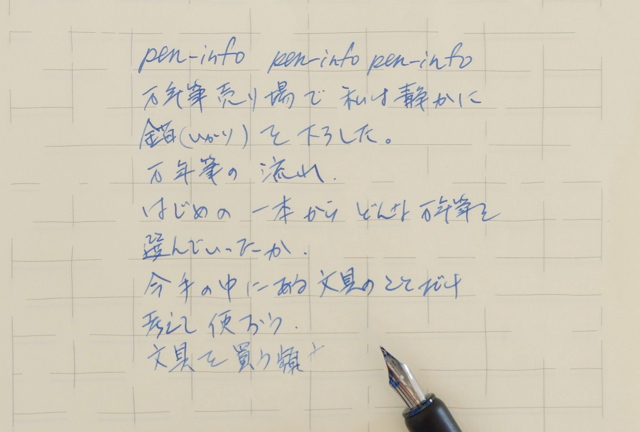 pen-info pen-info pen-info
万年筆売り場で 私は静かに
錨(いかり)を下ろした。
万年筆の 流れ.
はじめの 一本から どんな万年筆を
選んでいったか.
今手の中にある文具のことだけ
考えて 使おう.
文具を買う